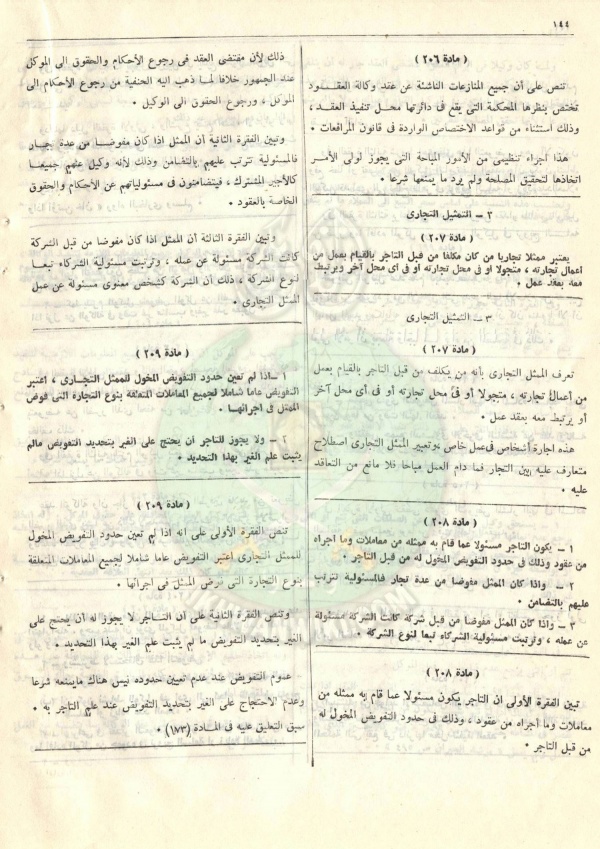 ١٤٤
( مادة ٢٠٦ )
تنص على أن جميع المنازعات الناشئة عن عقد وكالة العقود
تختص بنظرها المحكمة التى يقع فى دائرتها محل تنفيذ العقد ،
وذلك استثناء من قواعد الاختصاص الواردة فى قانون المرافعات .
هذا اجراء تنظيمى من الأمور المباحة التى يجوز لولى الأمر
اتخاذها لتحقيق المصلحة ولم يرد ما يمنعها شرعا .
٣ – التمثيل التجارى
( مادة ٢٠٧ )
يعتبر ممثلا تجاريا من كان مكلفا من قبل التاجر بالقيام بعمل من
اعمال تجارته ، متجولا او فى محل تجارته او فى اى محل آخر ويرتبط
معه بعقد عمل .
٣ – التمثيل التجارى
( مادة ٢٠٧ )
تعرف الممثل التجارى بأنه من يكلف من قبل التاجر بالقيام بعمل
من أعمال تجارته ، متجولا أو فى محل تجارته أو فى أى محل آخر
أو يرتبط معه بعقد عمل .
هذه اجارة أشخاص فى عمل خاص ، وتعبير الممثل التجارى اصطلاح
متعارف عليه بين التجار فما دام العمل مباحا فلا مانع من التعاقد
عليه .
( مادة ٢٠٨ )
١ – يكون التاجر مسئولا عما قام به ممثله من معاملات وما اجراه
من عقود وذلك فى حدود التفويض المخول له من قبل التاجر .
٢ – واذا كان الممثل مفوضا من عدة تجار فالمسئولية تترتب
عليهم بالتضامن .
٣ – واذا كان الممثل مفوضا من قبل شركة كانت الشركة مسئولة
عن عمله ، وترتبت مسئولية الشركاء تبعا لنوع الشركة .
( مادة ٢٠٨ )
تبين الفقرة الأولى ان التاجر يكون مسئولا عما قام به ممثله من
معاملات وما أجراه من عقود ، وذلك فى حدود التفويض المخول له
من قبل التاجر .
ذلك لأن مقتضى العقد فى رجوع الأحكام والحقوق الى الموكل
عند الجمهور خلافا لما ذهب اليه الحنفية من رجوع الأحكام الى
الموكل ، ورجوع الحقوق الى الوكيل .
وتبين الفقرة الثانية أن الممثل اذا كان مفوضا من عدة تجار
فالمسئولية تترتب عليهم بالتضامن وذلك لأنه وكيل عنهم جميعا
كالأجير المشترك ، فيتضامنون فى مسئولياتهم عن الأحكام والحقوق
الخاصة بالعقود .
وتبين الفقرة الثالثة أن الممثل اذا كان مفوضا من قبل الشركة
كانت الشركة مسئولة عن عمله ، وترتبت مسئولية الشركاء تبعا
لنوع الشركة ، ذلك أن الشركة كشخص معنوى مسئولة عن عمل
الممثل التجارى .
( مادة ٢٠٩ )
١ – اذا لم تعين حدود التفويض المخول للممثل التجارى ، اعتبر
التفويض عاما شاملا لجميع المعاملات المتعلقة بنوع التجارة التى فوض
الممثل فى اجرائها .
٢ – ولا يجوز للتاجر ان يحتج على الغير بتحديد التفويض مالم
يثبت علم الغير بهذا التحديد .
( مادة ٢٠٩ )
تنص الفقرة الأولى على انه اذا لم تعين حدود التفويض المخول
للممثل التجارى اعتبر التفويض عاما شاملا لجميع المعاملات المتعلقة
بنوع التجارة التى فوض الممثل فى اجرائها .
وتنص الفقرة الثانية على أن التاجر لا يجوز له أن يحتج على
الغير بتحديد التفويض ما لم يثبت علم الغير بهذا التحديد .
عموم التفويض عند عدم تعيين حدوده ليس هناك مايمنعه شرعا
وعدم الاحتجاج على الغير بتحديد التفويض عند علم التاجر به .
سبق التعليق عليه فى المادة (١٧٣) .